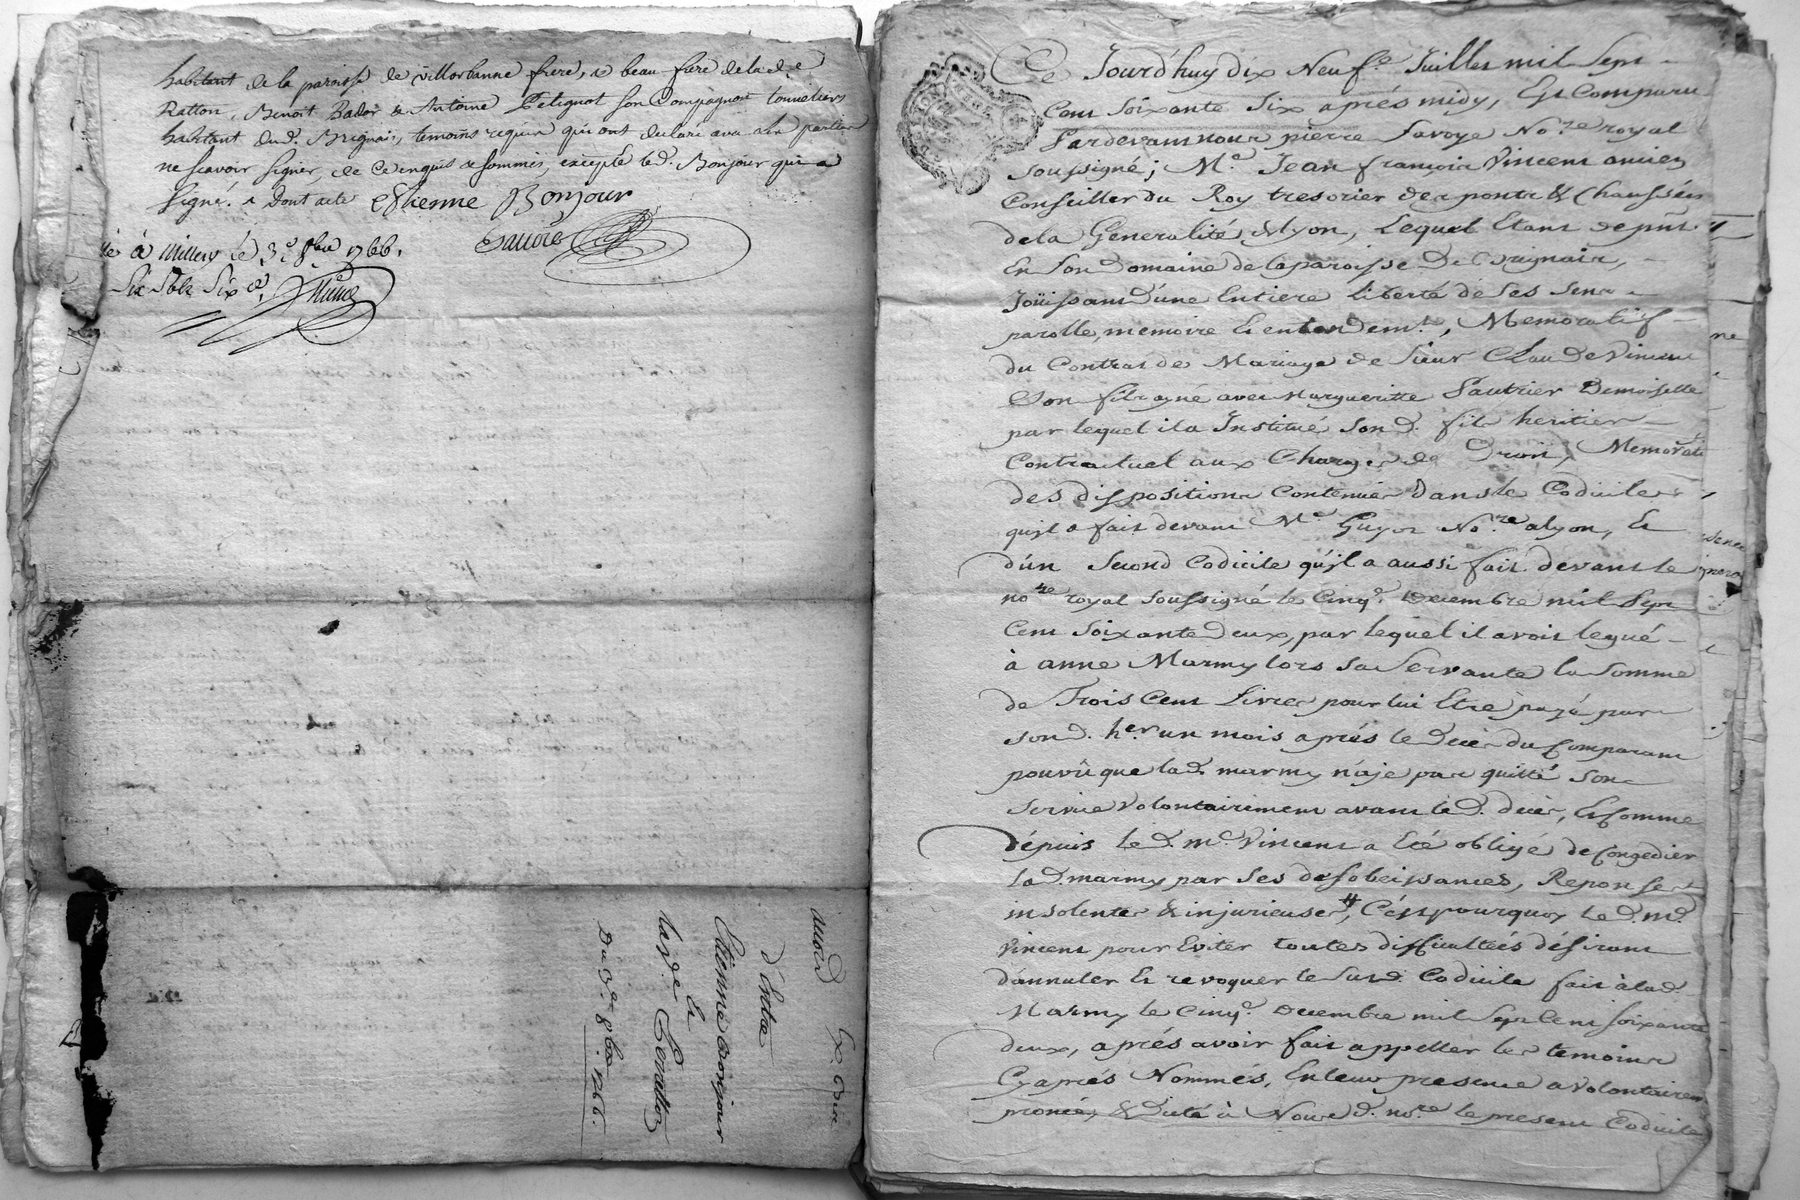 habitant de la paroisse de villorbanne frere, & beau frere de lad.e
Ratton, Benoit Bador & Antoine Petignot son Compagnon tonneliers
habitant dud. Brignais, temoins requis qui ont declaré avec les parties
ne scavoir signer, de ce enquis & sommés, excepté led. Bonjour qui a
signé. & dont acte Etienne Bonjour
Savoÿe
à Millery le 3.e 8bre 1766.
Six sols six d.
accord
d'Entre
Etienne Bonjour
Et
la v.e
Du 3.e 8bre 1766.
Ce Jourd'huy dix Neuf.e Juillet mil Sept
Cent Soixante Six aprés midy, Est Comparu
Pardevant nous pierre Savoye No.re royal
soussigné; M.e Jean françois Vincent ancien
Conseiller du Roy tresorier des ponts & Chaussées
de la Generalité de Lyon, Lequel Etant de pñt
En Son Domaine de la paroisse De Brignais,
Joüissant d'une Entiere liberté de Ses Sens
parolle, memoire Et entendem.t, Memoratif
du Contrat de Mariage de Sieur Claude Vincent
Son fils ayné avec Margueritte Pautrier Demoiselle
par lequel il a Institué Son d. fils heritier
Contractuel aux Charges de Droit, Memoratif
des dispositions Contenues Dans le Codicile
qu'il a fait devant M.e Guyot No.re a Lyon, Et
d'un Second Codicile qu'il a aussi fait devant le
no.re royal Soussigné le Cinq.e Decembre mil Sept
Cent Soixante Deux, par lequel il avoit legué
à anne Marmy lors Sa Servante la Somme
de Trois Cent Livres pour lui Etre payé par
Son d. her. un mois aprés le Decès du Comparant
pouvû que lad. marmy n'aje pas quitté Son
Service Volontairement avant led. decès, Et Comme
Dépuis le d. m.e Vincent a Eté obligé de Congedier
la d. marmy par Ses desobeissances, Reponses
insolentes & injurieuses, C'est pourquoy le d. m.e
Vincent pour Eviter toutes difficultés désirant
d'annuler Et revoquer le Sus d. Codicile fait à la d.
Marmy le Cinq.e Decembre mil Sept Cent Soixante
deux, aprés avoir fait appeller les temoins
Cy aprés Nommés, En leur presence a Volontairem.t
& Dicté à Nous d. no.re le present Codicile